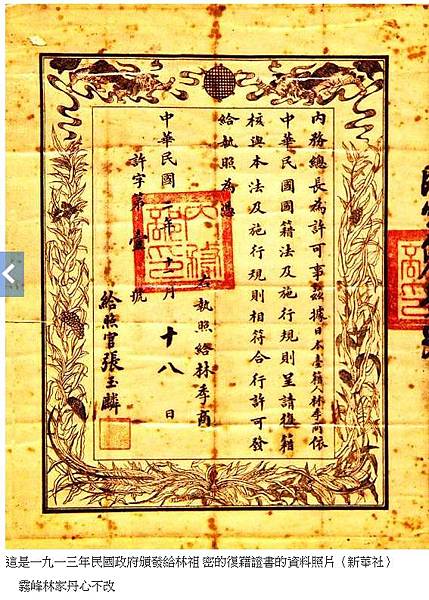 內務總長為許可事茲據日本臺籍人林季商依
中華民國國籍法及施行規則呈請復籍
核與本法及施行規則相符合行許可發
給執照為憑
右執照給林季商
中華民國 年十 月十八日
許字第壹號
給照官張玉麟
這是一九一三年民國政府頒發給林祖 密的復籍證書的資料照片（新華社）
霧峰林家丹心不改